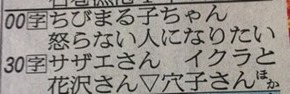 00字ちびまる子ちゃん
怒らない人になりたい
30字サザエさん イクラと
花沢さん▽穴子さんほか